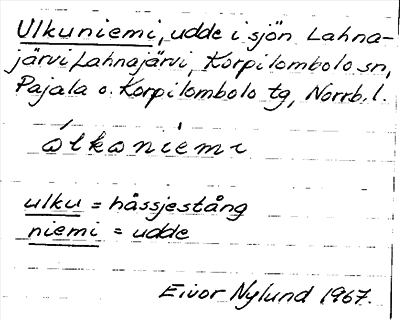 Ulkuniemi, udde i sjön Lahna-
järvi Lahnajärvi, Korpilombolo sn,
Pajala o. Korpilombolo tg, Norrb. l.
ólkoniemi
ulku = hässjestång
niemi = udde
Eivor Nylund 1967.